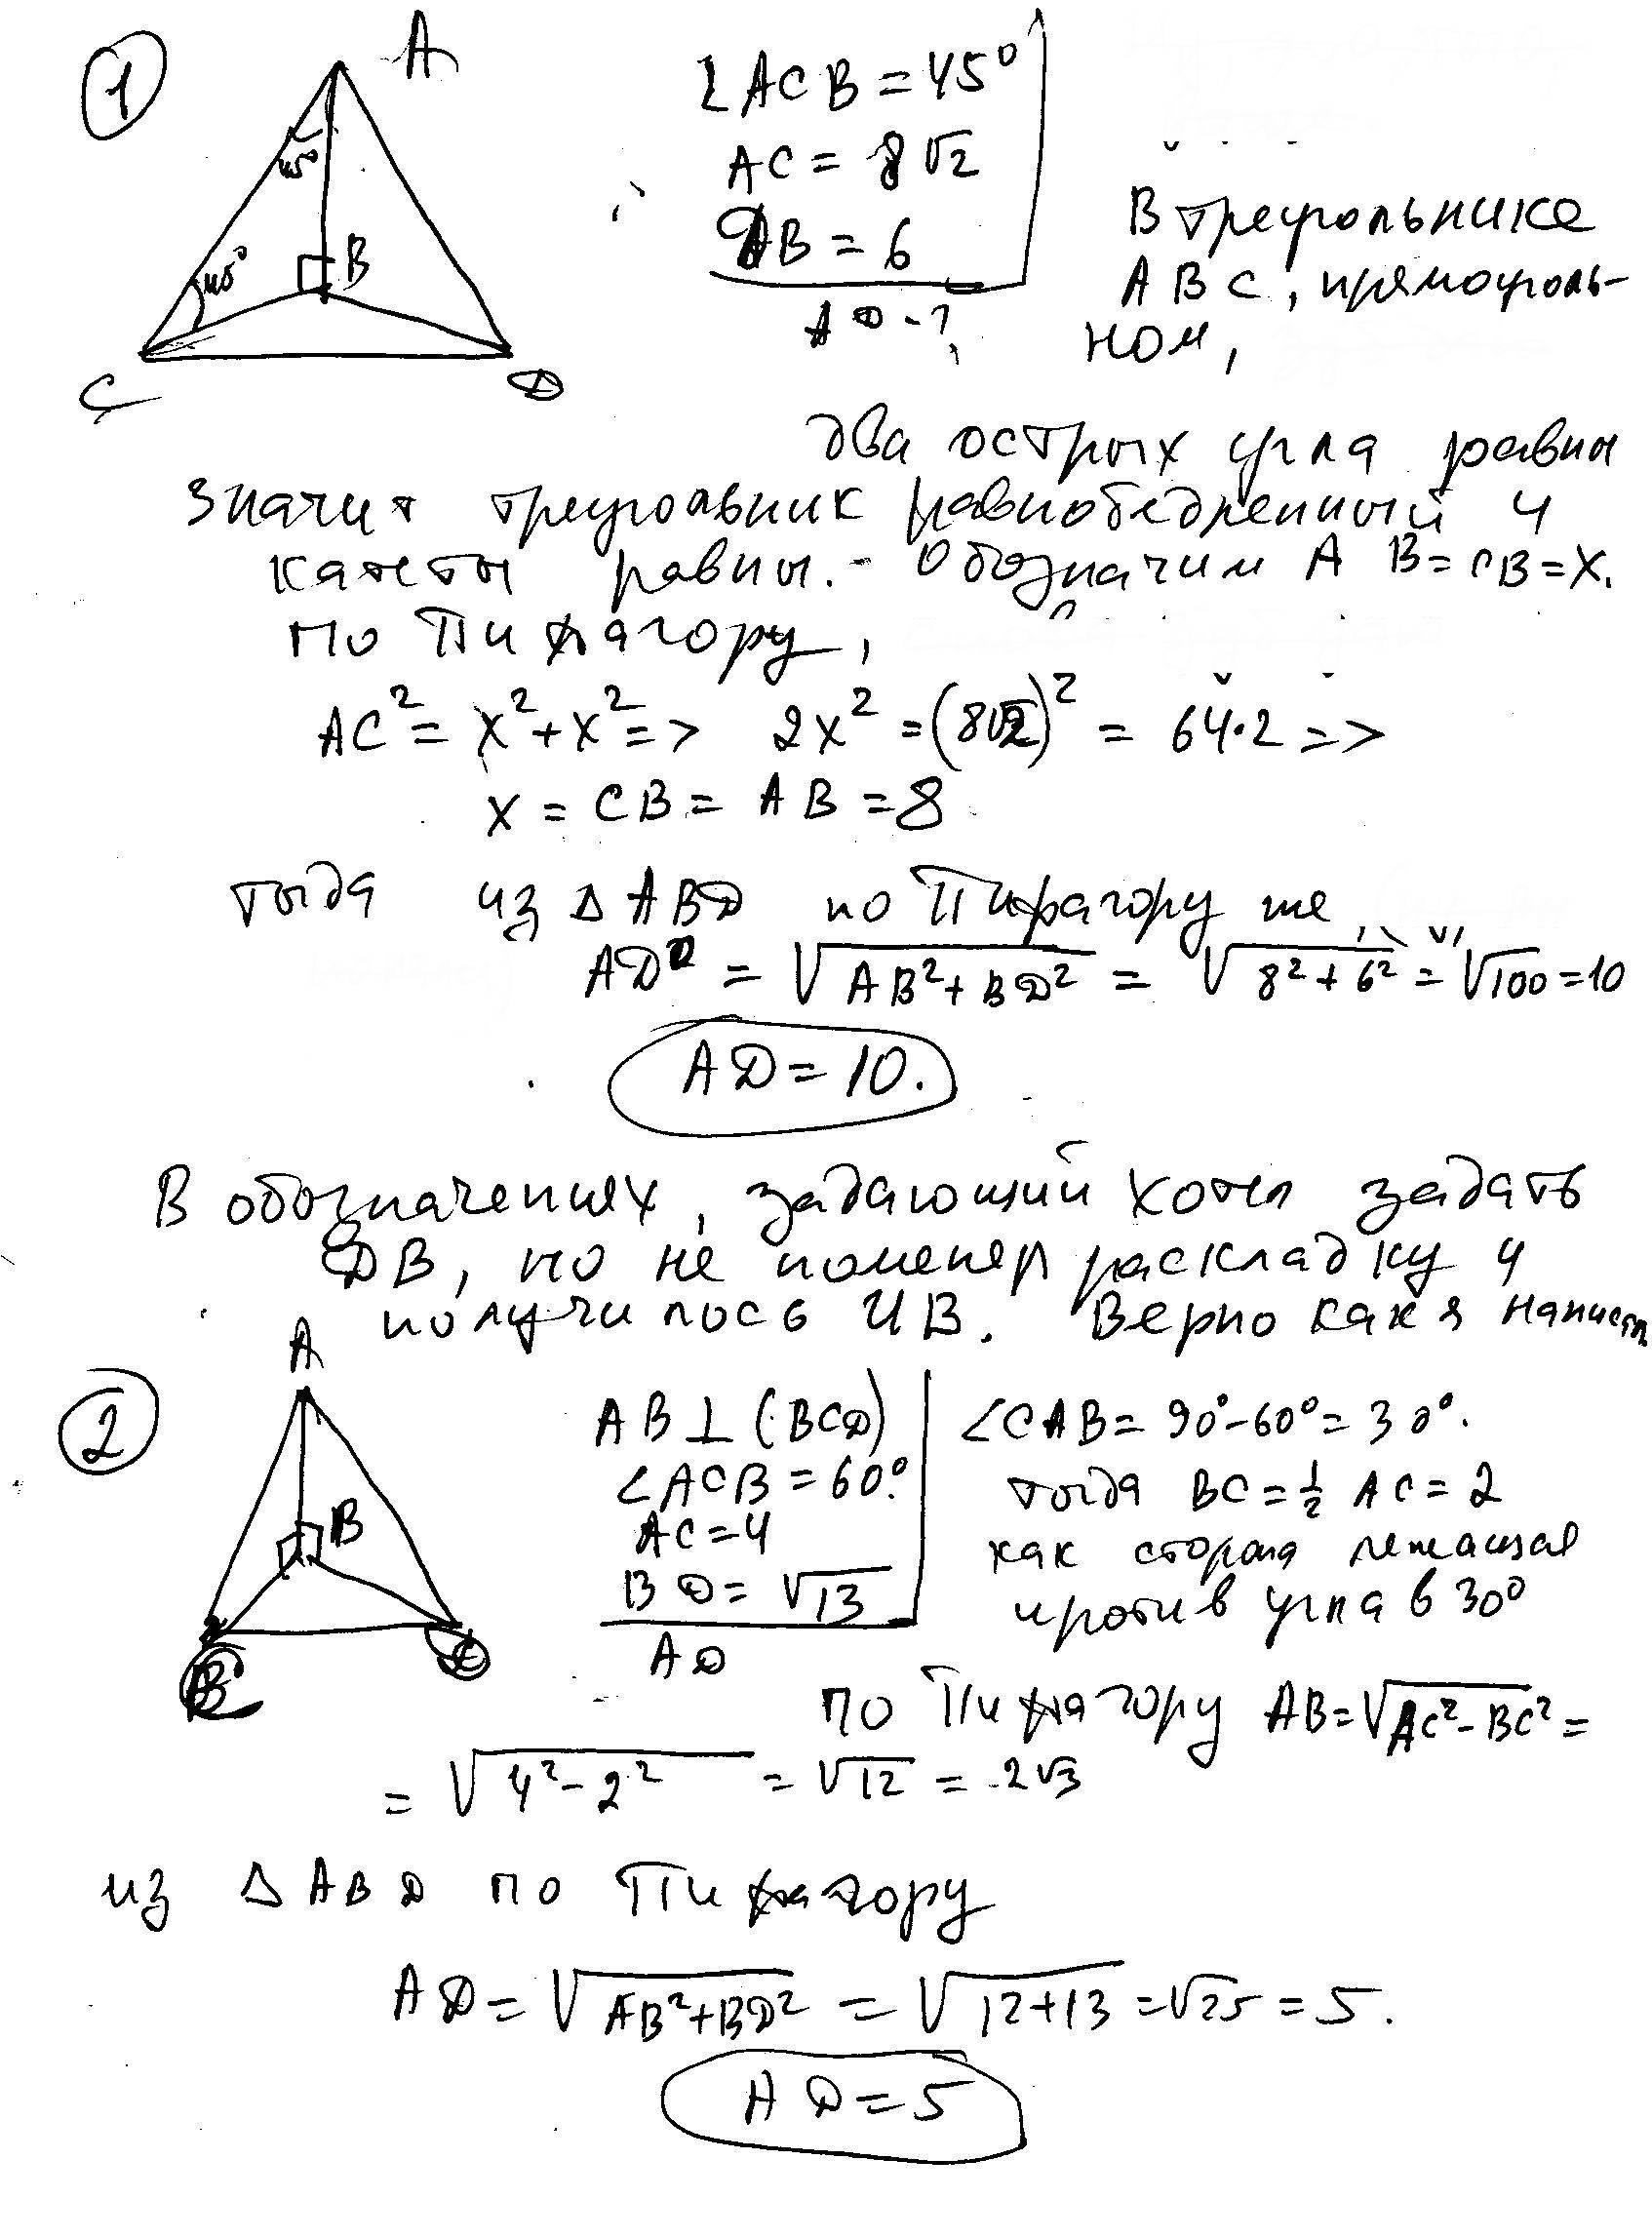 1
A
45°
45°
B
C
D
∠ACB = 45°
AC = 8√2
DB = 6
AD - ?
В треугольнике
ABC, прямоуголь-
ном,
два острых угла равны
значит треугольник равнобедренный и
катеты равны. - Обозначим AB = CB = x.
по Пифагору,
AC² = x² + x² => 2x² = (8√2)² = 64·2 =>
x = CB = AB = 8
тогда из △ABD по Пифагору же,
AD = √AB²+BD² = √8²+6² = √100 = 10
AD = 10.
В обозначениях, задающий хотел задать
DB, но не поменял раскладку и
получилось ИВ. Верно как я написал
2
A
B
C
D
AB ⊥ (BCD)
∠ACB = 60°
AC = 4
BD = √13
AD
∠CAB = 90° - 60° = 30°.
тогда BC = ½ AC = 2
как сторона лежащая
против угла в 30°
по Пифагору AB = √AC² - BC² =
= √4² - 2² = √12 = 2√3
из △ABD по Пифагору
AD = √AB²+BD² = √12+13 = √25 = 5.
AD = 5